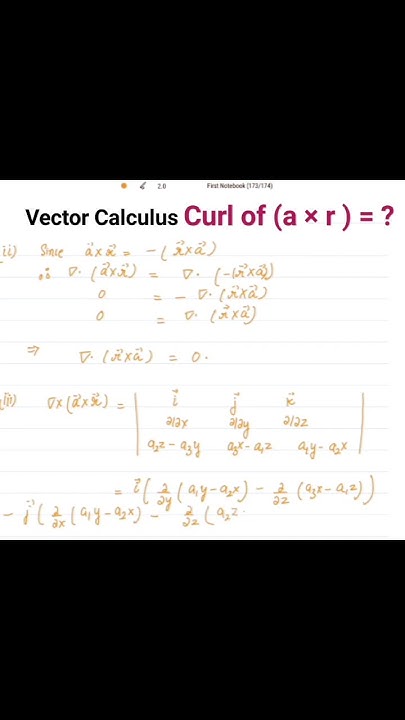 2.0 First Notebook (173/174)
Vector Calculus Curl of (a × r ) = ?
ii) Since a⃗×r⃗ = -(r⃗×a⃗)
∴ ∇·(a⃗×r⃗) = ∇·(-(r⃗×a⃗))
0 = -∇·(r⃗×a⃗)
0 = ∇·(r⃗×a⃗)
⇒ ∇·(r⃗×a⃗) = 0.
(iii) ∇×(a⃗×r⃗) = | i⃗ j⃗ k⃗ |
∂/∂x ∂/∂y ∂/∂z
a₂z-a₃y a₃x-a₁z a₁y-a₂x
= i⃗(∂/∂y(a₁y-a₂x) - ∂/∂z(a₃x-a₁z))
- j⃗(∂/∂x(a₁y-a₂x) - ∂/∂z(a₂z